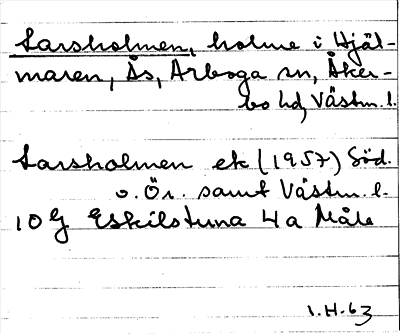 Larsholmen, holme i Hjäl-
maren, Ås, Arboga sn, Åker-
bo hd, Västm. l.
Larsholmen ek (1957) Söd.
o. Ör. samt Västm. l.
10 G Eskilstuna 4 a Måle
1.H.63